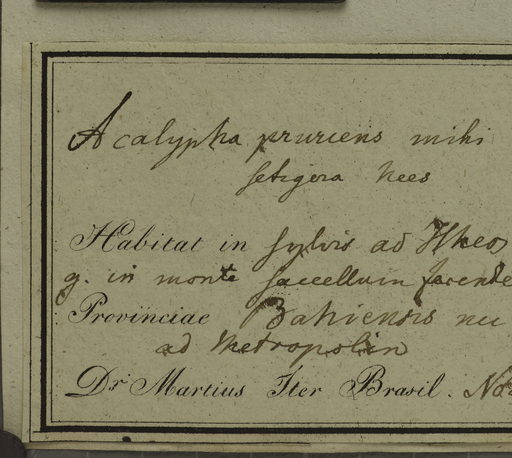 Acalypha pruriens mihi
setigera Nees
Habitat in sylvis ad Ilheos
g. in monte sacellum ferente
Provinciae Bahiensis nec
ad Metropolin
Dr. Martius Iter Brasil. No